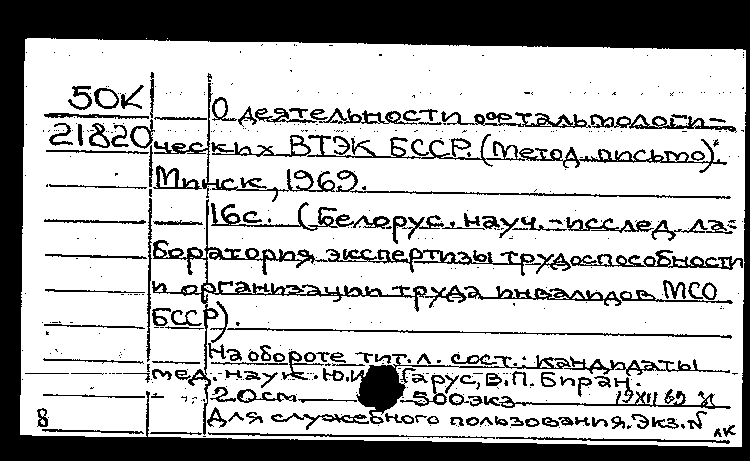 50К
О деятельности офтальмологи-
21820
ческих ВТЭК БССР. (Метод. письмо).
Минск, 1969.
16с. (Белорус. науч.-исслед. ла-
боратория экспертизы трудоспособности
и организации труда инвалидов МСО
БССР).
На обороте тит. л. сост.: кандидаты
мед. наук Ю.И. Гарус, В.П. Биран.
20см. 500экз. 19XII69
Для служебного пользования. Экз. N
8 лк